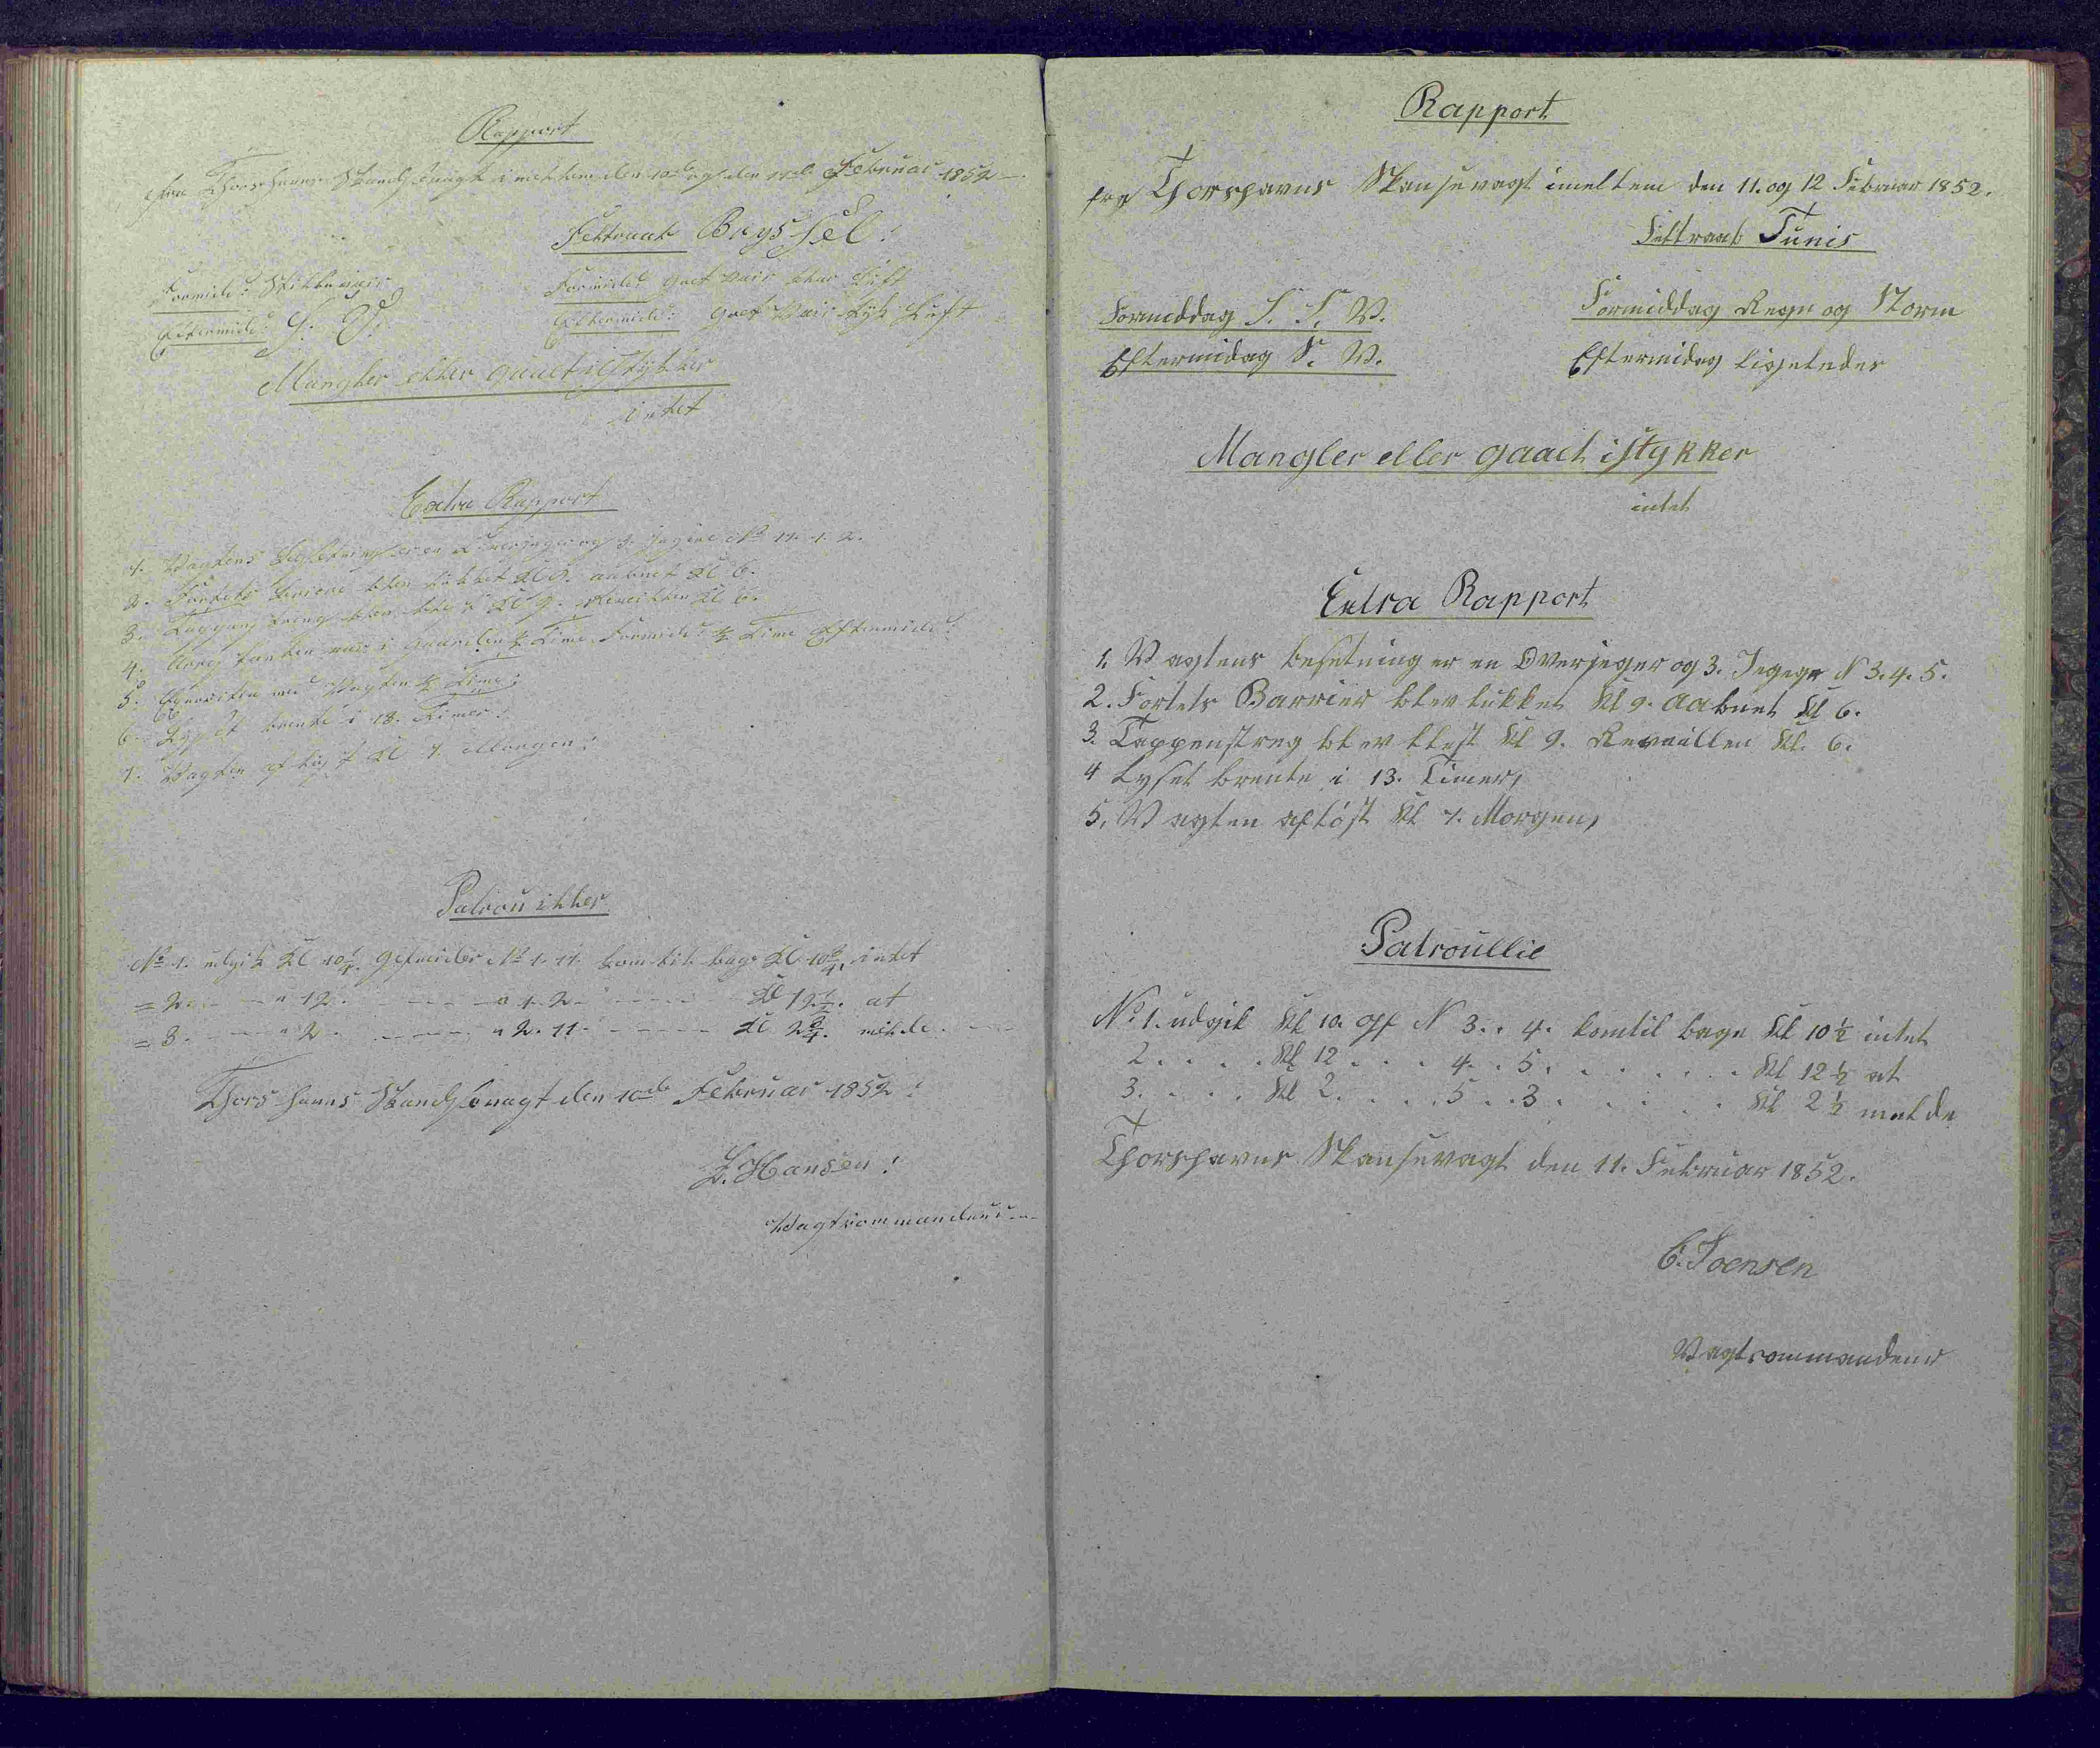 Rapport
fra Thorshavns Skandsevagt imellem den 10de og den 11te Februar 1852
Feltraab Bryssel:
Formidd: Stille Formidd: Godt Veir klar Luft
Eftermidd: S. V. Eftermidd: godt Veir tyk Luft
Mangler eller gaaet istykker
intet
Extra Rapport
1. Vagtens besetning er en Overjeger og 3. Jegere No 11. 1. 2.
2. Fortets Barriere blev lukket Kl 9. aabnet Kl 6.
3. Tappenstreg blev blest Kl 9. Reveillen Kl 6.
4. Arrestanten var i Gaarden ½ Time Formidd: ½ Time Eftermidd:
5. Vagten ½ Time:
6. Lyset brente i 13. Timer.
7. Vagten afløst Kl 7. Morgen:
Patrouiller
No 1. udgik Kl 10¼. Gefreider No 1. 11. kom tilbage Kl 10¾. intet
= 2. - - " 12. - - - - " 1. 2. - - - - Kl 12½. at
= 3. - - " 2. - - - - " 2. 11. - - - - Kl 2¾. melde. - -
Thorshavns Skandsevagt den 10de Februar 1852:
L. Hansen:
Vagtcommandeur
Rapport
fra Thorshavns Skansevagt imellem den 11. og 12 Februar 1852.
Feltraab Tunis
Formiddag S. S. V. Formiddag Regn og Storm
Eftermidag S. V. Eftermidag ligeledes
Mangler eller gaaet istykker
intet
Extra Rapport
1. Vagtens besetning er en Overjeger og 3. Jegegr N 3. 4. 5.
2. Fortets Barrier blev lukket Kl 9. Aabnet Kl 6.
3. Tappenstreg blev blest Kl 9. Revaillen Kl. 6.
4 Lyset brente i 13. Timer,
5. Vagten afløst Kl 7. Morgen,
Patroullie
No 1. udgik Kl 10. Gff N 3. . 4. kom til bage Kl 10½ intet
2. . . . . Kl 12 . . . 4. . 5. . . . . . . Kl 12½ at
3. . . . . Kl 2. . . . . 5 . . 3 . . . . . . Kl 2½ melde
Thorshavns Skansevagt den 11. Februar 1852.
C. Joensen
Vagtcommandeur